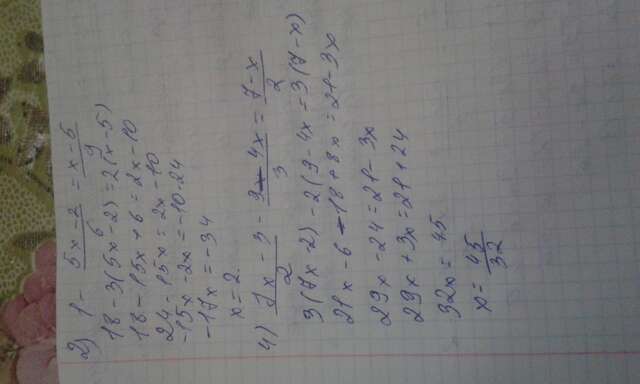 2) 1 - (5x-2)/6 = (x-5)/9
18-3(5x-2)=2(x-5)
18-15x+6=2x-10
24-15x=2x-10
-15x-2x=-10-24
-17x=-34
x=2
4) (7x-3)/2 - (9-4x)/3 = (7-x)/2
3(7x-2)-2(9-4x=3(7-x)
21x-6-18+8x=21-3x
29x-24=21-3x
29x+3x=21+24
32x=45
x=45/32